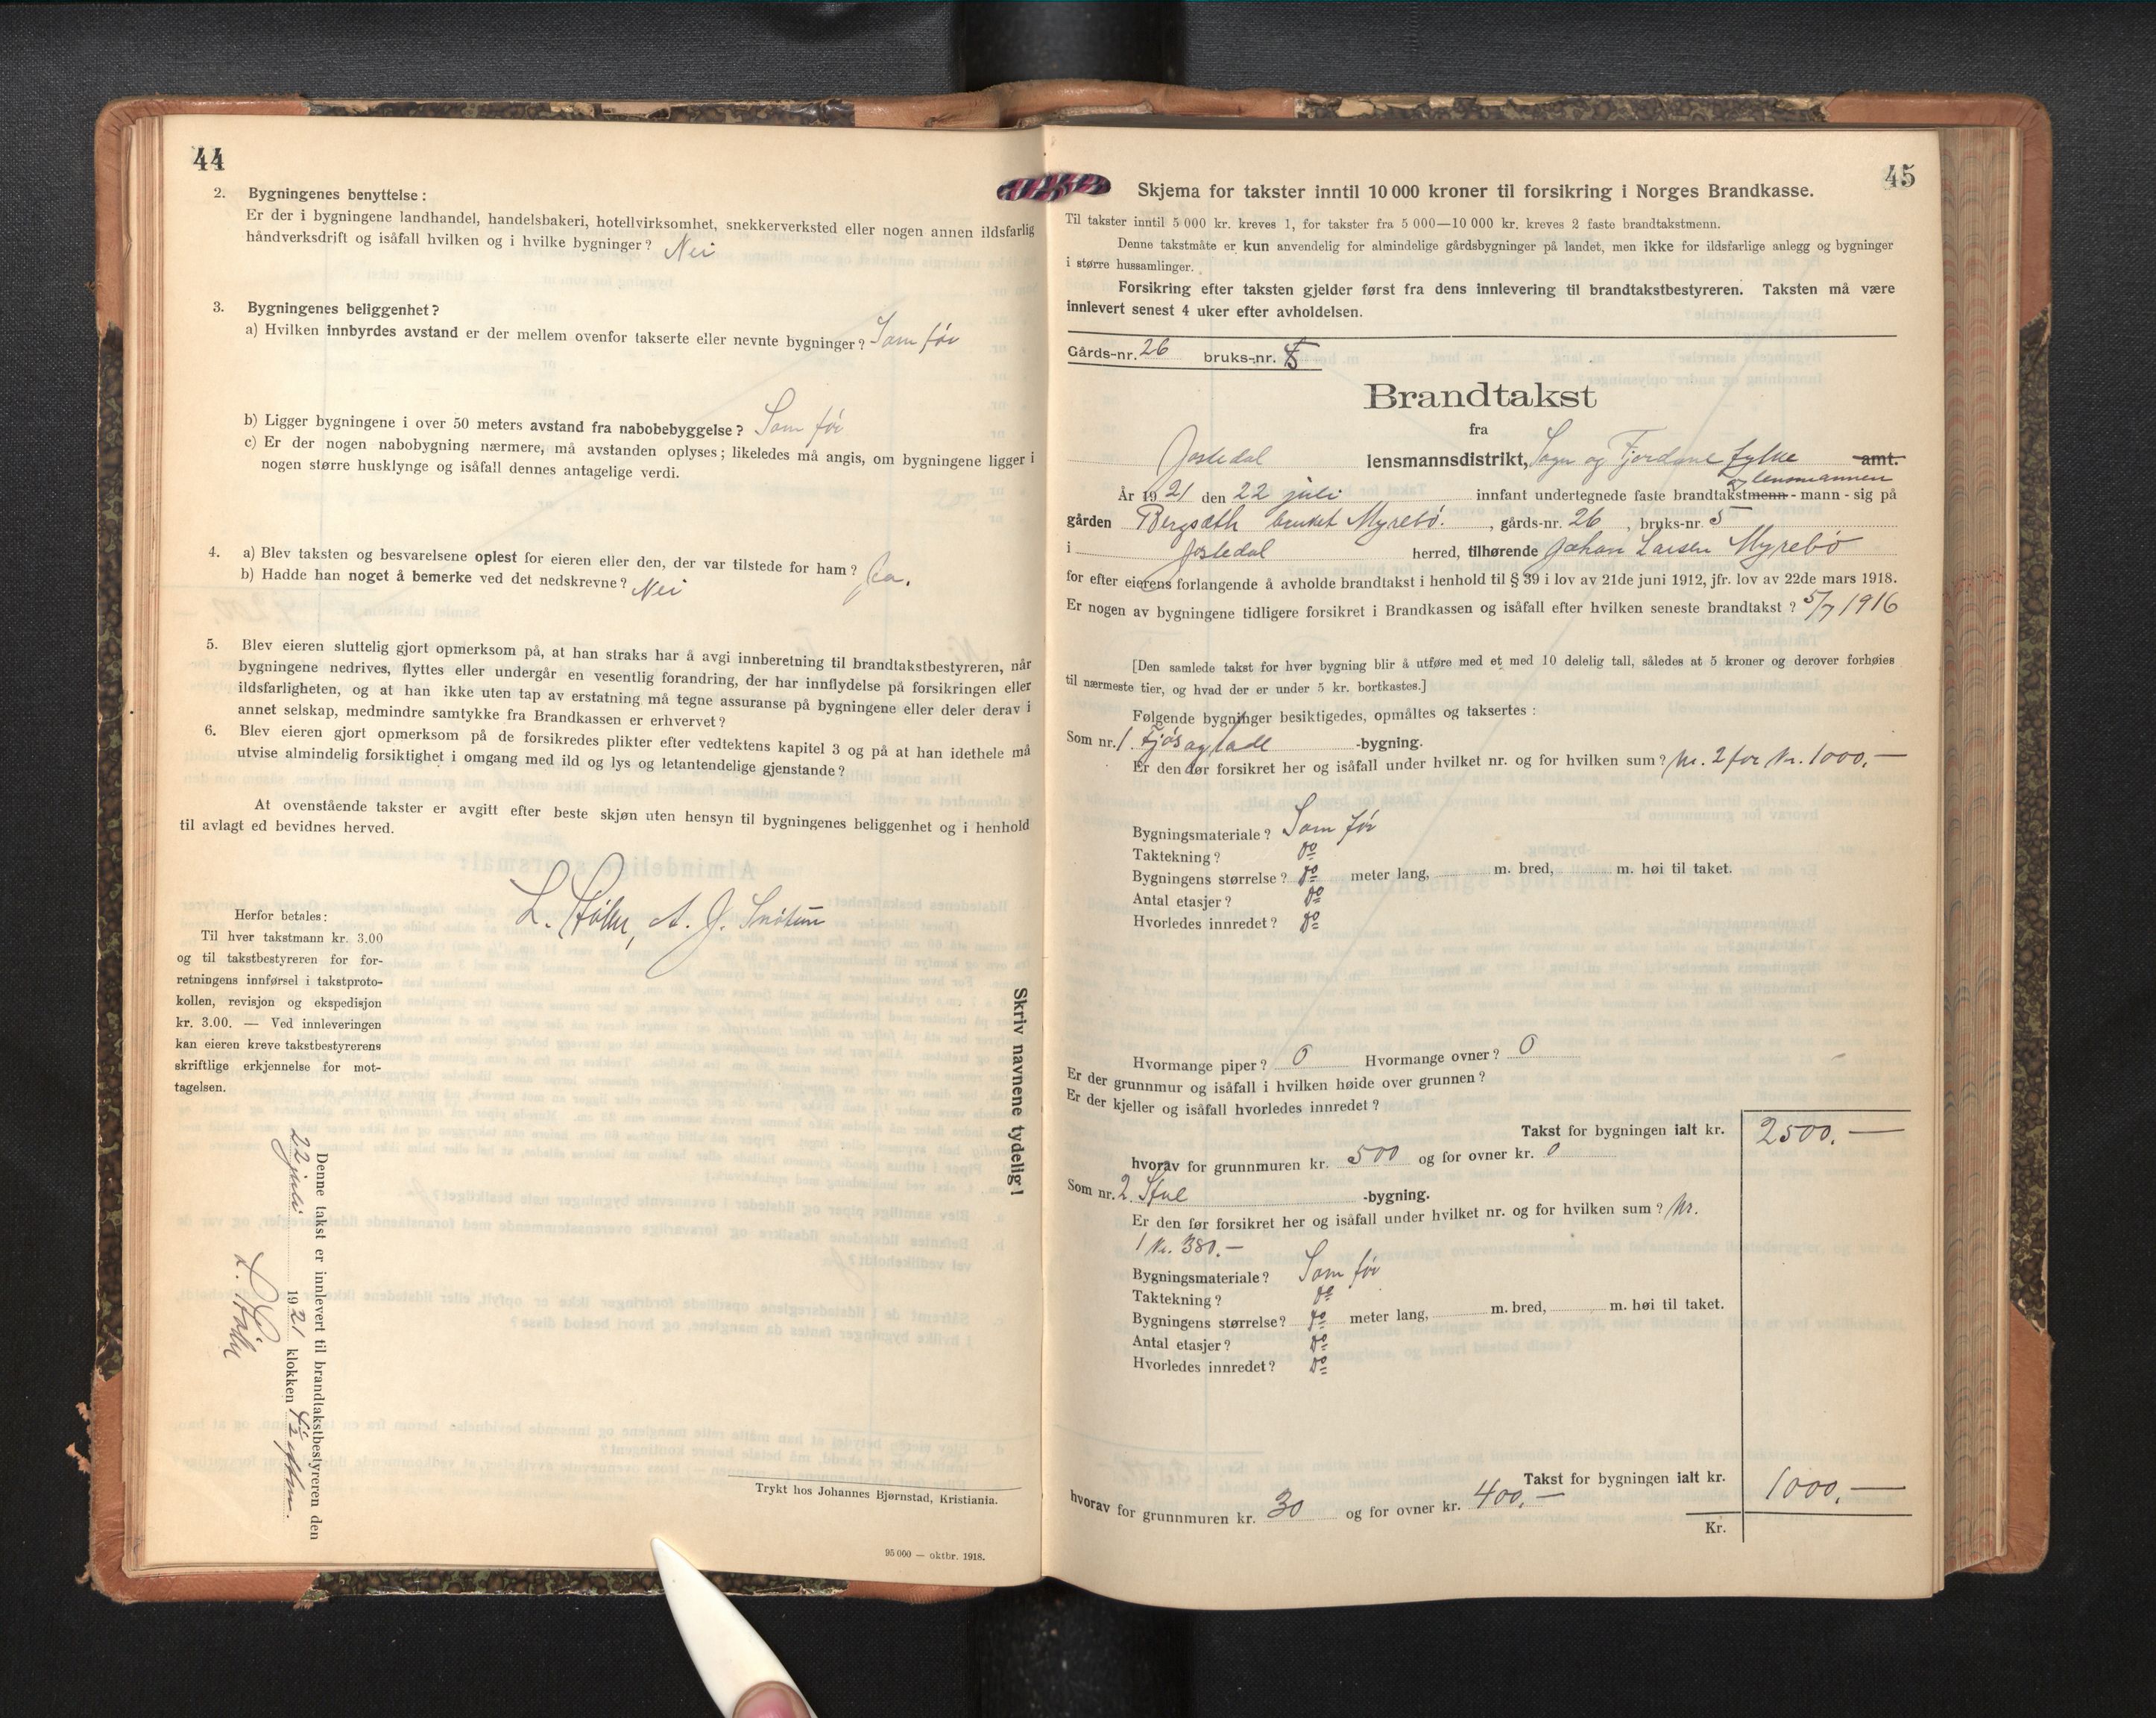 44
2. Bygningenes benyttelse :
Er der i bygningene landhandel, handelsbakeri, hotellvirksomhet, snekkerverksted eller nogen annen ildsfarlig
håndverksdrift og isåfall hvilken og i hvilke bygninger? Nei
3. Bygningenes beliggenhet?
a) Hvilken innbyrdes avstand er der mellem ovenfor takserte eller nevnte bygninger? Som før
b) Ligger bygningene i over 50 meters avstand fra nabobebyggelse? Som før
c) Er der nogen nabobygning nærmere, må avstanden oplyses; likeledes må angis, om bygningene ligger i
nogen større husklynge og isåfall dennes antagelige verdi.
4. a) Blev taksten og besvarelsene oplest for eieren eller den, der var tilstede for ham? Ja.
b) Hadde han noget å bemerke ved det nedskrevne? Nei
5. Blev eieren sluttelig gjort opmerksom på, at han straks har å avgi innberetning til brandtakstbestyreren, når
bygningene nedrives, flyttes eller undergår en vesentlig forandring, der har innflydelse på forsikringen eller
ildsfarligheten, og at han ikke uten tap av erstatning må tegne assuranse på bygningene eller deler derav i
annet selskap, medmindre samtykke fra Brandkassen er erhvervet?
6. Blev eieren gjort opmerksom på de forsikredes plikter efter vedtektens kapitel 3 og på at han idethele må
utvise almindelig forsiktighet i omgang med ild og lys og letantendelige gjenstande?
At ovenstående takster er avgitt efter beste skjøn uten hensyn til bygningenes beliggenhet og i henhold
til avlagt ed bevidnes herved.
L. , A. J. Snøtun
Herfor betales:
Til hver takstmann kr. 3.00
og til takstbestyreren for for-
retningens innførsel i takstproto-
kollen, revisjon og ekspedisjon
kr. 3.00. — Ved innleveringen
kan eieren kreve takstbestyrerens
skriftlige erkjennelse for mot-
tagelsen.
Skriv navnene tydelig!
Denne takst er innlevert til brandtakstbestyreren den
22 juli 1921 klokken
L.
Trykt hos Johannes Bjørnstad, Kristiania.
95 000 — oktbr. 1918.
45
Skjema for takster inntil 10 000 kroner til forsikring i Norges Brandkasse.
Til takster inntil 5 000 kr. kreves 1, for takster fra 5 000—10 000 kr. kreves 2 faste brandtakstmenn.
Denne takstmåte er kun anvendelig for almindelige gårdsbygninger på landet, men ikke for ildsfarlige anlegg og bygninger
i større hussamlinger.
Forsikring efter taksten gjelder først fra dens innlevering til brandtakstbestyreren. Taksten må være
innlevert senest 4 uker efter avholdelsen.
Gårds-nr. 26 bruks-nr. 5
Brandtakst
fra
Jostedal lensmannsdistrikt, Sogn og Fjordane fylke amt.
og lensmannen
År 1921 den 22 juli innfant undertegnede faste brandtakstmenn - mann - sig på
gården Bergsæth bruket Myrebø. , gårds-nr. 26 , bruks-nr. 5
i Jostedal herred, tilhørende Johan Larsen Myrebø
for efter eierens forlangende å avholde brandtakst i henhold til § 39 i lov av 21de juni 1912, jfr. lov av 22de mars 1918.
Er nogen av bygningene tidligere forsikret i Brandkassen og isåfall efter hvilken seneste brandtakst? 5/7 1916
[Den samlede takst for hver bygning blir å utføre med et med 10 delelig tall, således at 5 kroner og derover forhøies
til nærmeste tier, og hvad der er under 5 kr. bortkastes.]
Følgende bygninger besiktigedes, opmåltes og taksertes :
Som nr. 1. Fjøs og lade -bygning.
Er den før forsikret her og isåfall under hvilket nr. og for hvilken sum? Nr. 2 for Kr. 1000,—
Bygningsmateriale? Som før
Taktekning? do
Bygningens størrelse? do meter lang, m. bred, m. høi til taket.
Antal etasjer? do
Hvorledes innredet? do
Hvormange piper? 0 Hvormange ovner? 0
Er der grunnmur og isåfall i hvilken høide over grunnen?
Er der kjeller og isåfall hvorledes innredet?
Takst for bygningen ialt kr. 2500,—
hvorav for grunnmuren kr. 500 og for ovner kr. 0
Som nr. 2. Stue -bygning.
Er den før forsikret her og isåfall under hvilket nr. og for hvilken sum? Nr.
1 Kr. 380.—
Bygningsmateriale? Som før
Taktekning? do
Bygningens størrelse? do meter lang, m. bred, m. høi til taket.
Antal etasjer? do
Hvorledes innredet? do
Takst for bygningen ialt kr. 1000,—
hvorav for grunnmuren kr. 30 og for ovner kr. 400,—
Kr.